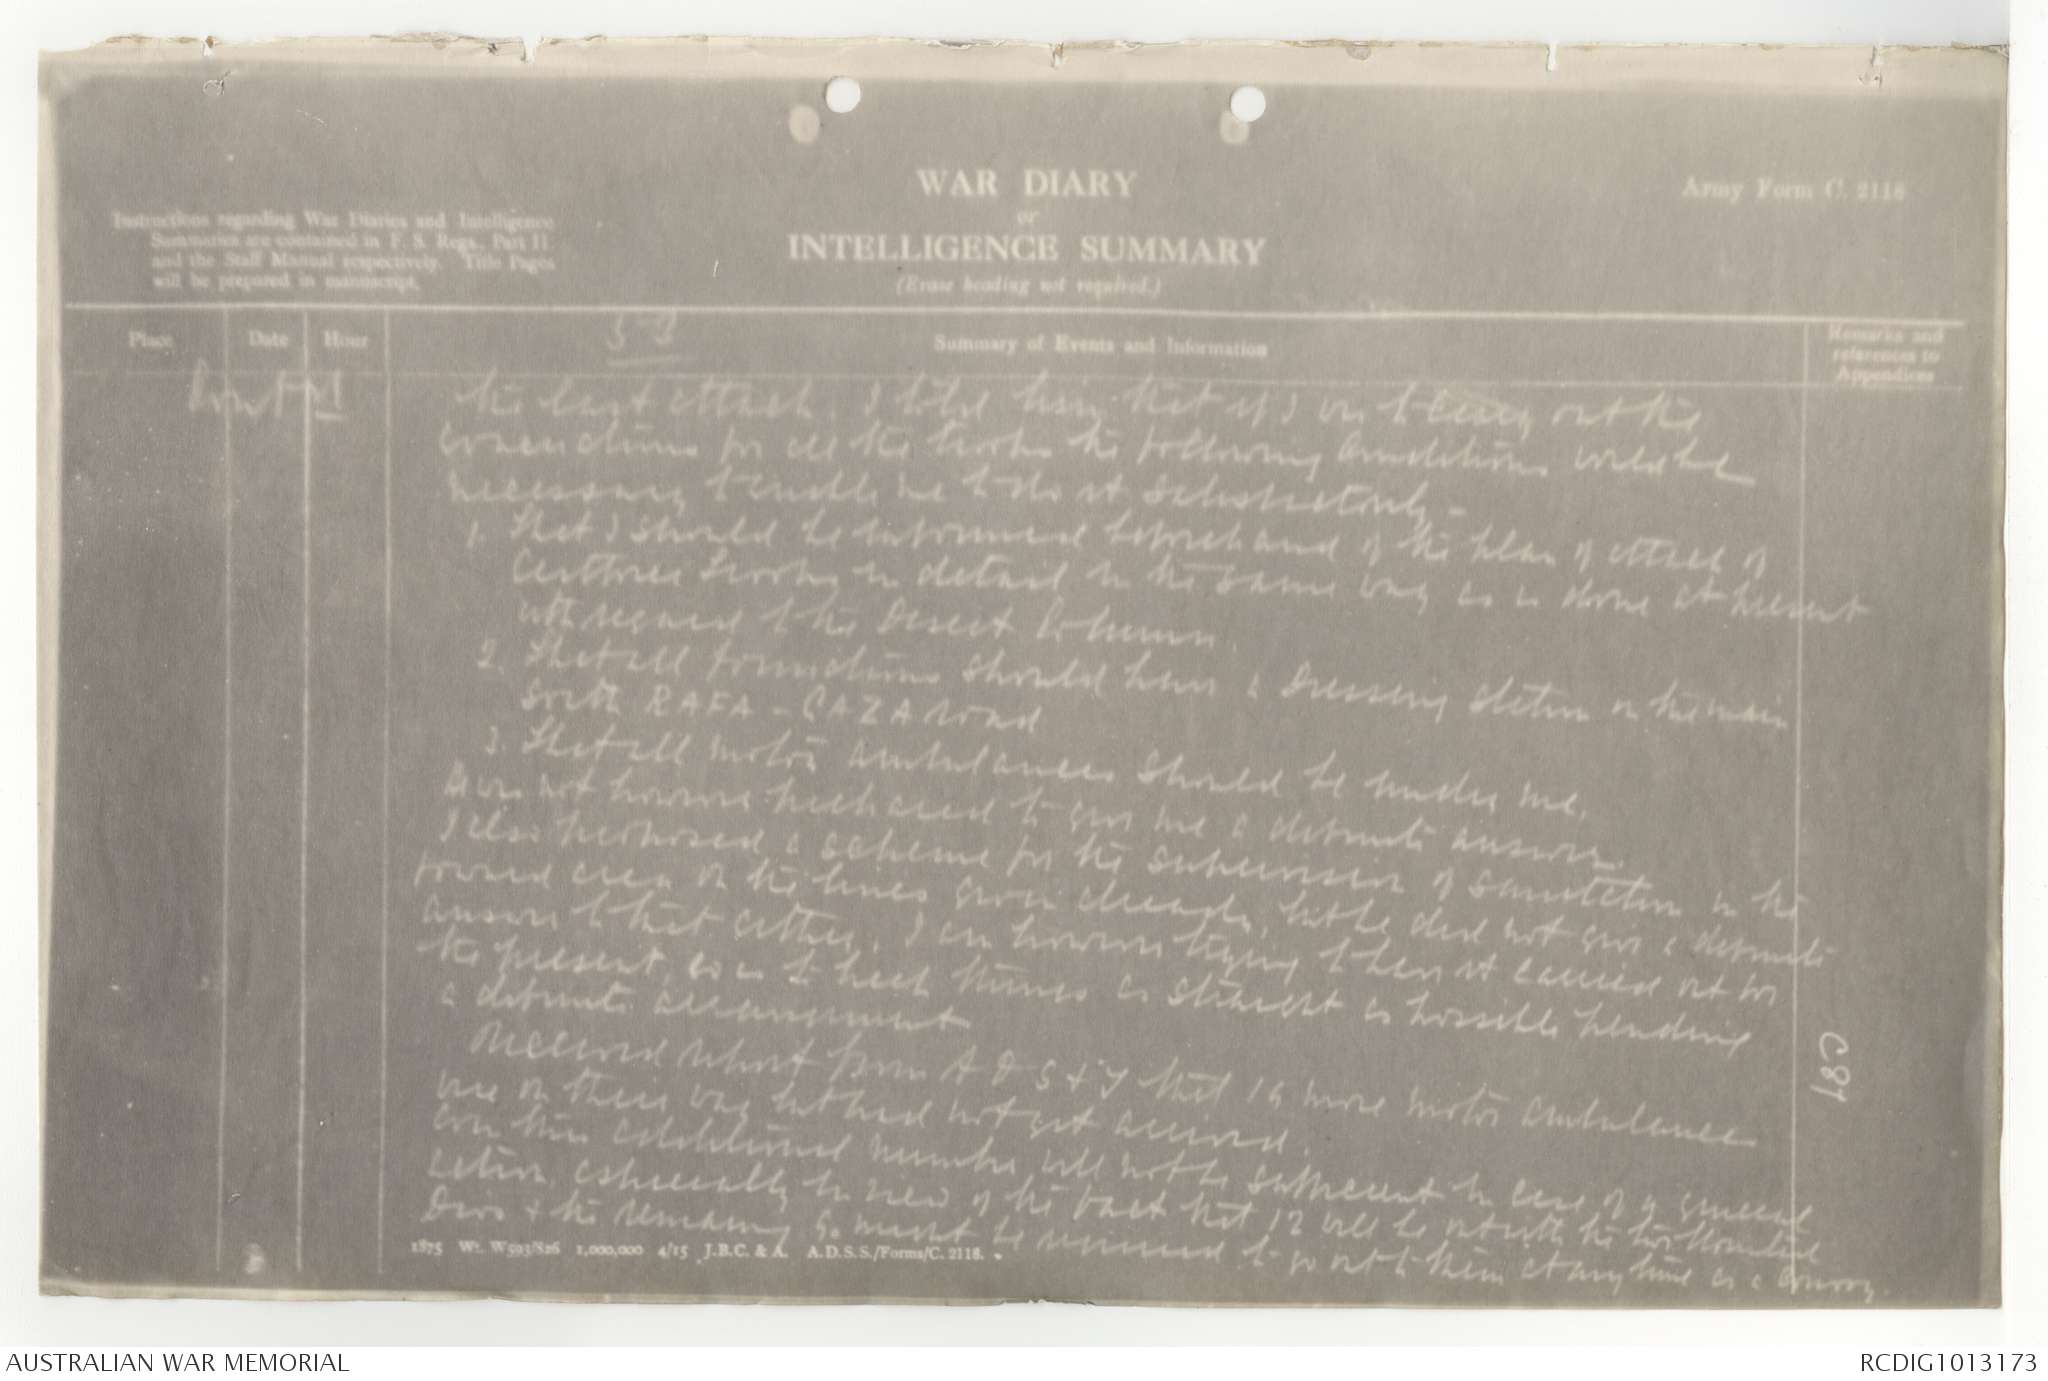 WAR DIARY
or
INTELLIGENCE SUMMARY
(Erase heading not required.)
Army Form C. 2118
Instructions regarding War Diaries and Intelligence
Summaries are contained in F. S. Regs., Part II.
and the Staff Manual respectively. Title Pages
will be prepared in manuscript.
Place
Date
Hour
Summary of Events and Information
Remarks and
references to
Appendices
the last attack. I told him that if I was to carry out the
for all the troops the following conditions would be
necessary to enable me to do it satisfactorily -
1. That I should be informed beforehand of the plan of attack of
Eastforce Troops in detail in the same way as is done at present
with regard to the Desert Column.
2. That all formations should have a Dressing Station on the main
South RAFA - GAZA road
3. That all motor ambulances should be under me.
He was not however prepared to give me a definite answer.
I also proposed a scheme for the supervision of sanitation in the
forward area on the lines given already, but he did not give a definite
answer to that either. I am however trying to have it carried out for
the present, so as to keep things as straight as possible pending
a definite arrangement
Received report from A D S & T that 14 more motor ambulances
are on their way but had not yet arrived.
Even this additional number will not be sufficient in case of a general
action, especially in view of the fact that 12 will be with the two Mounted
Divs & the remaining must be to go out to them at any time as a convoy.
C87
1875 Wt. W593/826 1,000,000 4/15 J.B.C. & A. A.D.S.S./Forms/C. 2118.
AUSTRALIAN WAR MEMORIAL
RCDIG1013173